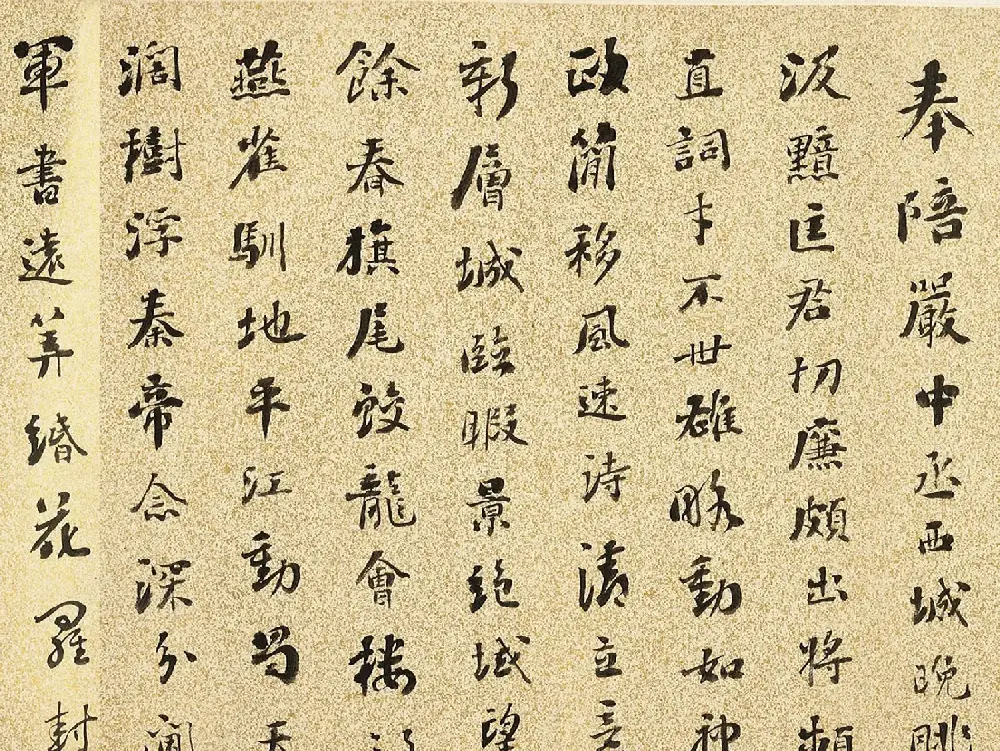 奉陪嚴中丞西城晚眺
汲黯匡君切廉頗出將頻
直詞才不世雄略動如神
政簡移風速詩清立意
新層城臨暇景絕域望
餘春旗尾蛟龍會樓
燕雀馴地平江動蜀天
濶樹浮秦帝念深分閫
軍書遠筭緡花羅封